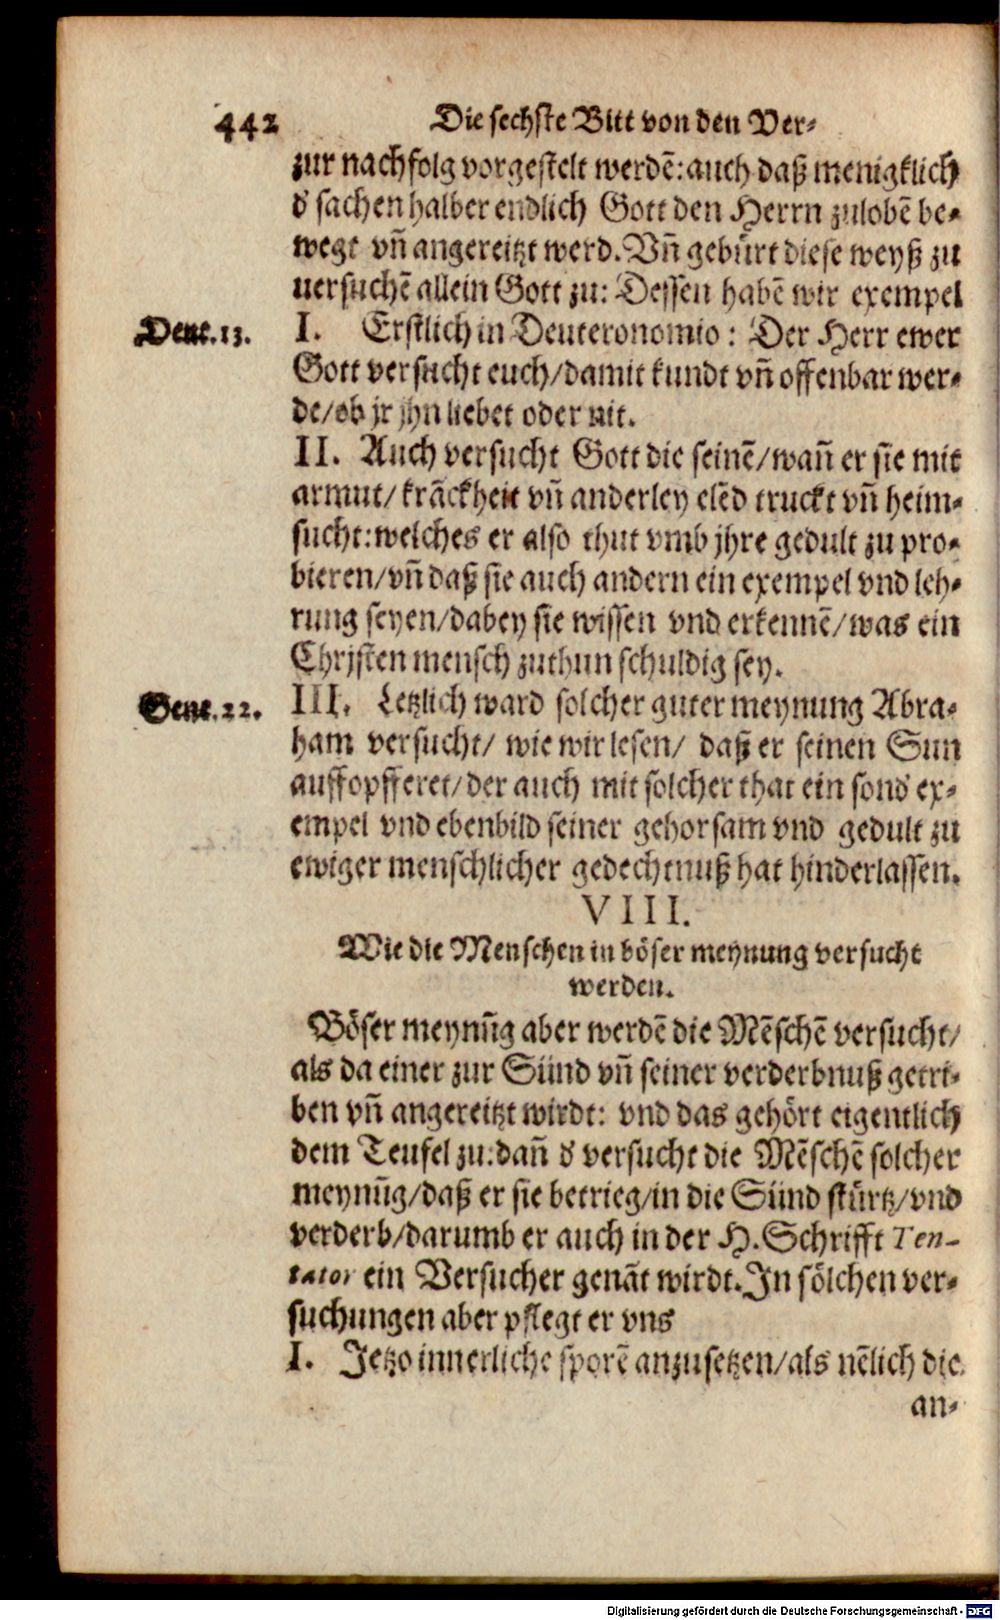 442 Die sechste Bitt von den Ver⸗
zur nachfolg vorgestelt werdẽ: auch daß menigklich
d' sachen halber endlich Gott den Herrn zulobẽ be⸗
wegt vñ angereitzt werd. Vñ gebürt diese weyß zu
uersuchẽ allein Gott zu: Dessen habẽ wir exempel
Deut. 13.
I. Erstlich in Deuteronomio: Der Herr ewer
Gott versucht euch/ damit kundt vñ offenbar wer⸗
de/ ob jr jhn liebet oder nit.
II. Auch versucht Gott die seinẽ/ wañ er sie mit
armut/ krãckheit vñ anderley elẽd truckt vñ heim⸗
sucht: welches er also thut vmb jhre gedult zu pro⸗
bieren/ vñ daß sie auch andern ein exempel vnd leh⸗
rung seyen/ dabey sie wissen vnd erkennẽ/ was ein
Christen mensch zuthun schuldig sey.
Gene. 22.
III. Letzlich ward solcher guter meynung Abra⸗
ham versucht/ wie wir lesen/ daß er seinen Sun
auffopfferet/ der auch mit solcher that ein sond' ex⸗
empel vnd ebenbild seiner gehorsam vnd gedult zu
ewiger menschlicher gedechtnuß hat hinderlassen.
VIII.
Wie die Menschen in böser meynung versucht
werden.
Böser meynũg aber werdẽ die Mẽschẽ versucht/
als da einer zur Sünd vñ seiner verderbnuß getri⸗
ben vñ angereitzt wirdt: vnd das gehört eigentlich
dem Teufel zu: dañ d' versucht die Mẽschẽ solcher
meynũg/ daß er sie betrieg/ in die Sünd stürtz/ vnd
verderb/ darumb er auch in der H. Schrifft Ten-
tator ein Versucher genãt wirdt. In sölchen ver⸗
suchungen aber pflegt er vns
I. Jetzo innerliche sporẽ anzusetzen/ als nẽlich die
an⸗
Digitalisierung gefördert durch die Deutsche Forschungsgemeinschaft - DFG